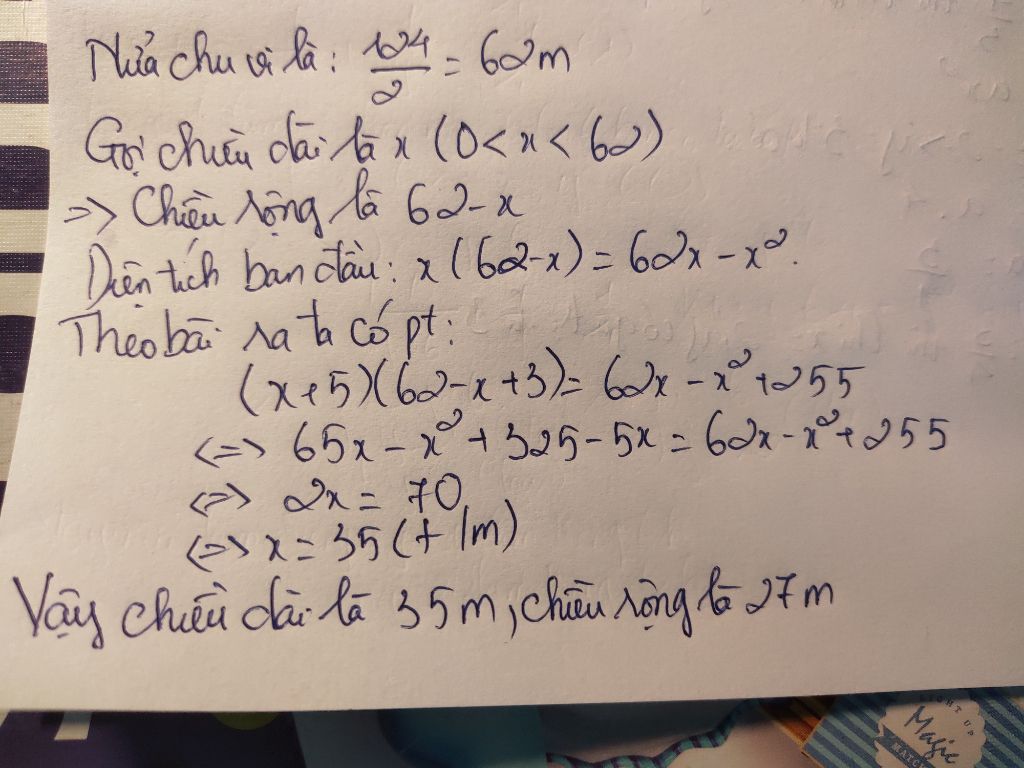 Nửa chu vi là: 124/2 = 62m
Gọi chiều dài là x (0 < x < 62)
=> Chiều rộng là 62 - x
Diện tích ban đầu: x(62-x) = 62x - x².
Theo bài ra ta có pt:
(x+5)(62-x+3) = 62x - x² + 255
<=> 65x - x² + 325 - 5x = 62x - x² + 255
<=> 2x = 70
<=> x = 35 (t/m)
Vậy chiều dài là 35m, chiều rộng là 27m
Magic